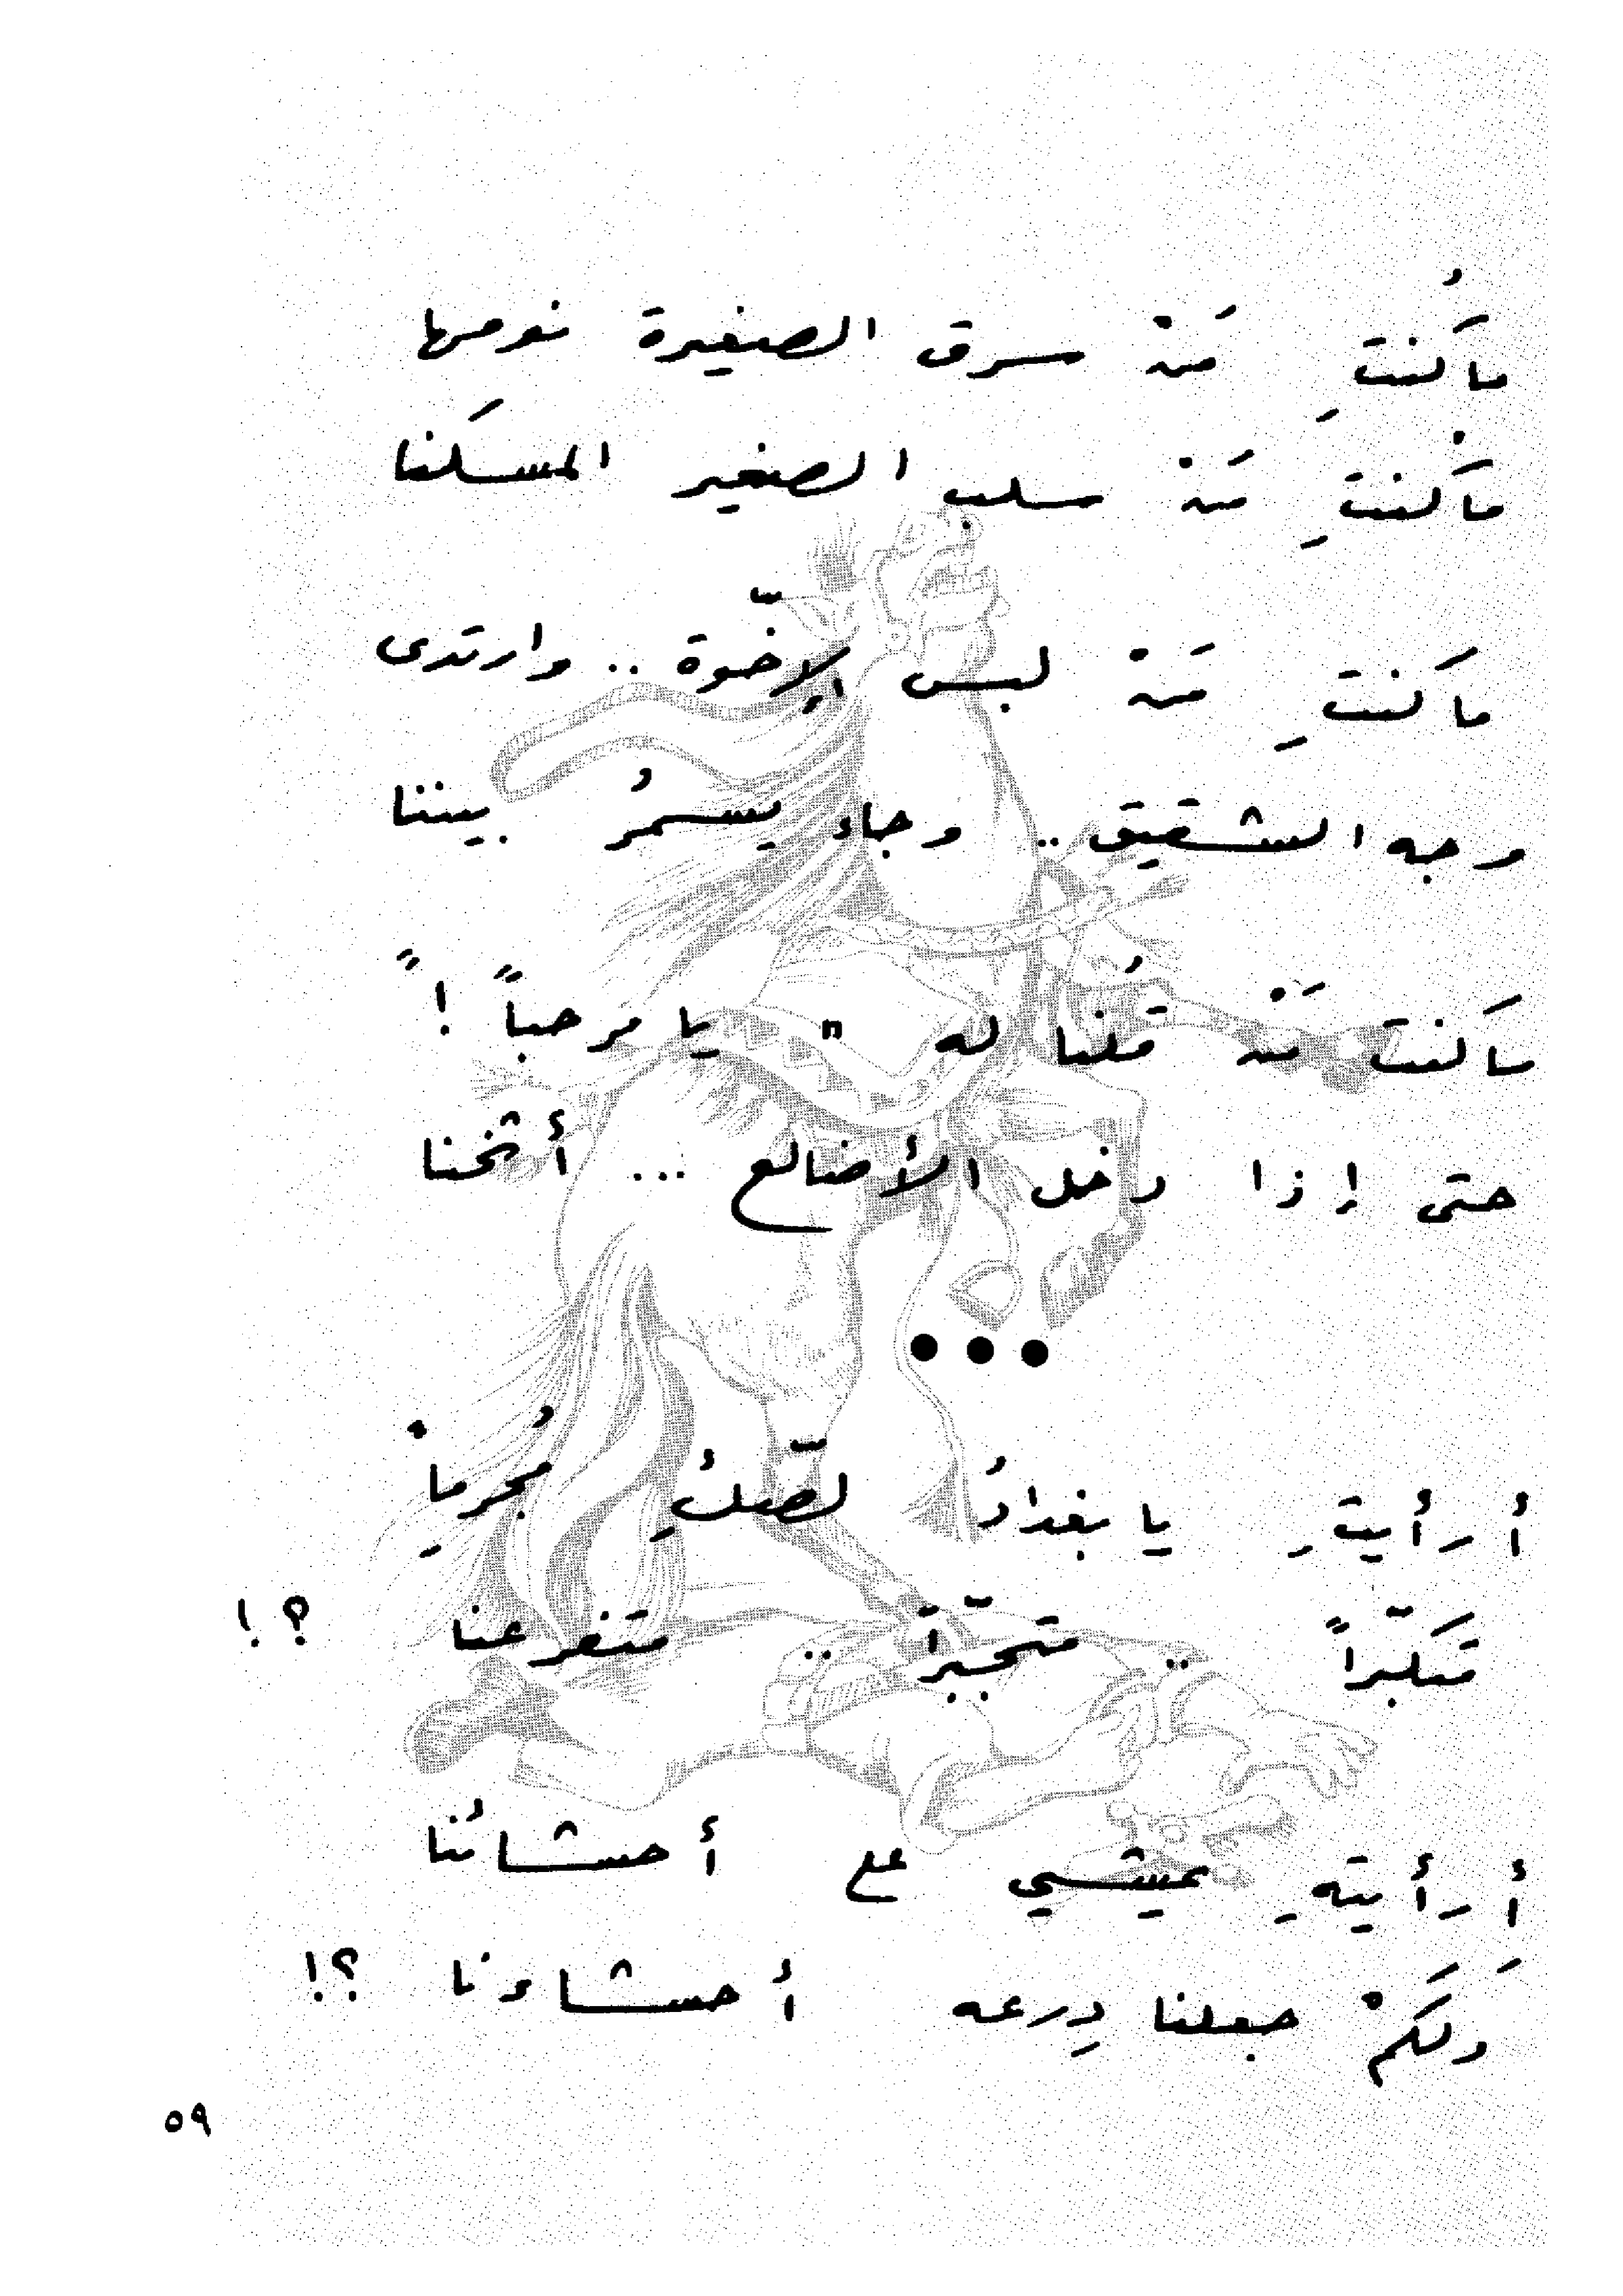 ما كُنتِ مَنْ سرق الصغيرة نومها
ما كنتِ مَنْ سلب الصغير المسكَنا
ما كنتِ مَنْ لبس الإخوّة .. وارتدى
وجه الشقيق .. وجاء يسمُر بيننا
ما كنت مَنْ قُلنا له " يا مرحباً ! "
حتى إذا دخل الأضالع ... أثخنا
•••
أرأيتِ يا بغدادُ لصّكُِ مُجرماً
متكبّراً .. متجبّراً .. متفرعنا ؟!
أرأيتهِ يمشي على أحشائُنا
ولكَمْ جعلنا دِرعه أحشاءنا ؟!
٥٩